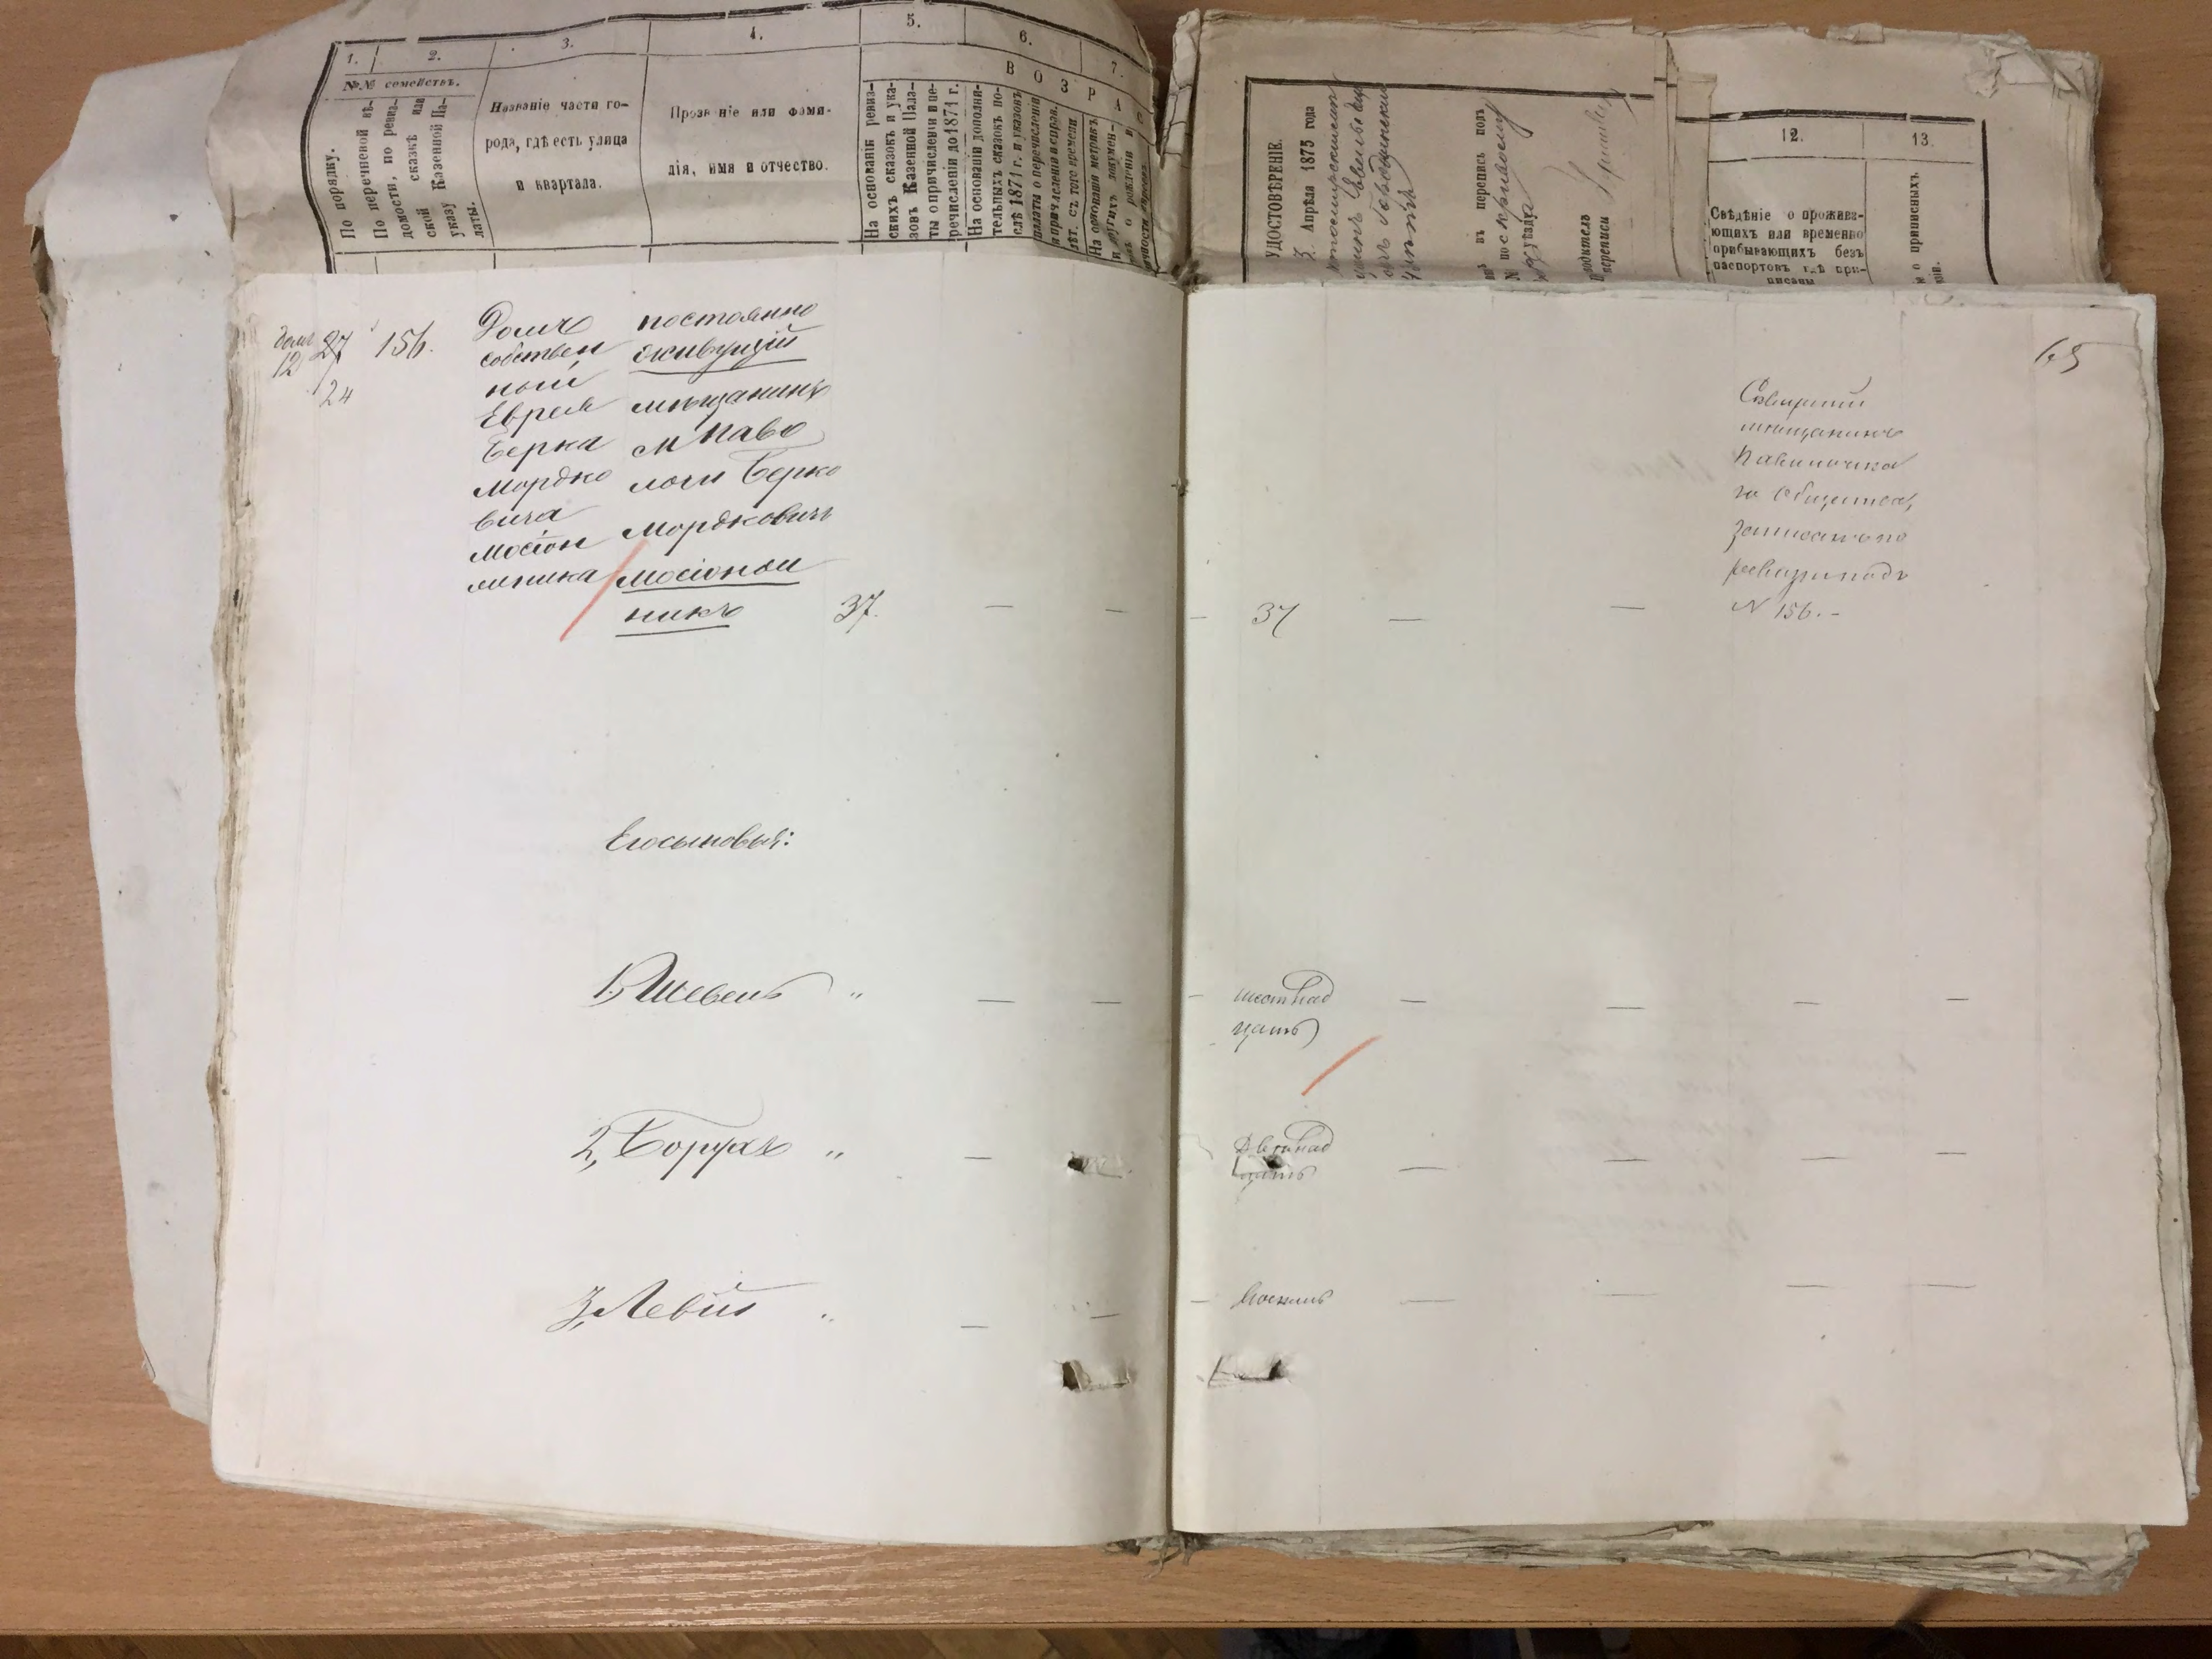 1.
2.
3.
4.
5.
6.
7.
№№ семействъ.
По порядку.
По перечневой вѣ-
домости, по ревиз-
ской сказкѣ или
указу Казенной Па-
латы.
Названіе части го-
рода, гдѣ есть улица
и квартала.
Прозваніе или фами-
лія, имя и отчество.
В О З Р А С
На основаніи ревиз-
скихъ сказокъ и ука-
зовъ Казенной Пала-
ты о причисленіи и пе-
речисленіи до 1871 г.
На основаніи дополни-
тельныхъ сказокъ по-
слѣ 1871 г. и указовъ
палаты о перечисленіи
и причисленіи и справ.
лѣт. съ того времени.
На основаніи метрик.
и другихъ докумен-
о рожденіи и
УДОСТОВѢРЕНІЕ.
3. Апрѣля 1875 года
въ перепись подъ
№ по
уѣзда
переписи
12.
13.
Свѣдѣніе о прожива-
ющихъ или временно
прибывающихъ безъ
паспортовъ гдѣ при-
писаны
о приписныхъ
домъ
12
27
24
156.
Домъ
собствен
ный
Еврея
Берка
Мордко
вича
Мосіон
жника
постоянно
живущій
мѣщанинъ
м Паво
лочи Берко
Мордковичъ
Мосіонж
никъ
37.
— — —
37
— —
65
Сквирскій
мѣщанинъ
Паволочска
го общества,
записанъ по
ревизіи подъ
№ 156.-
Его сыновья:
1, Шевель " — — —
шестнад
цать
— — — —
2, Борухъ " —
Двѣнад
цать
— — — —
3, Левій " — — —
восемь
— — — —